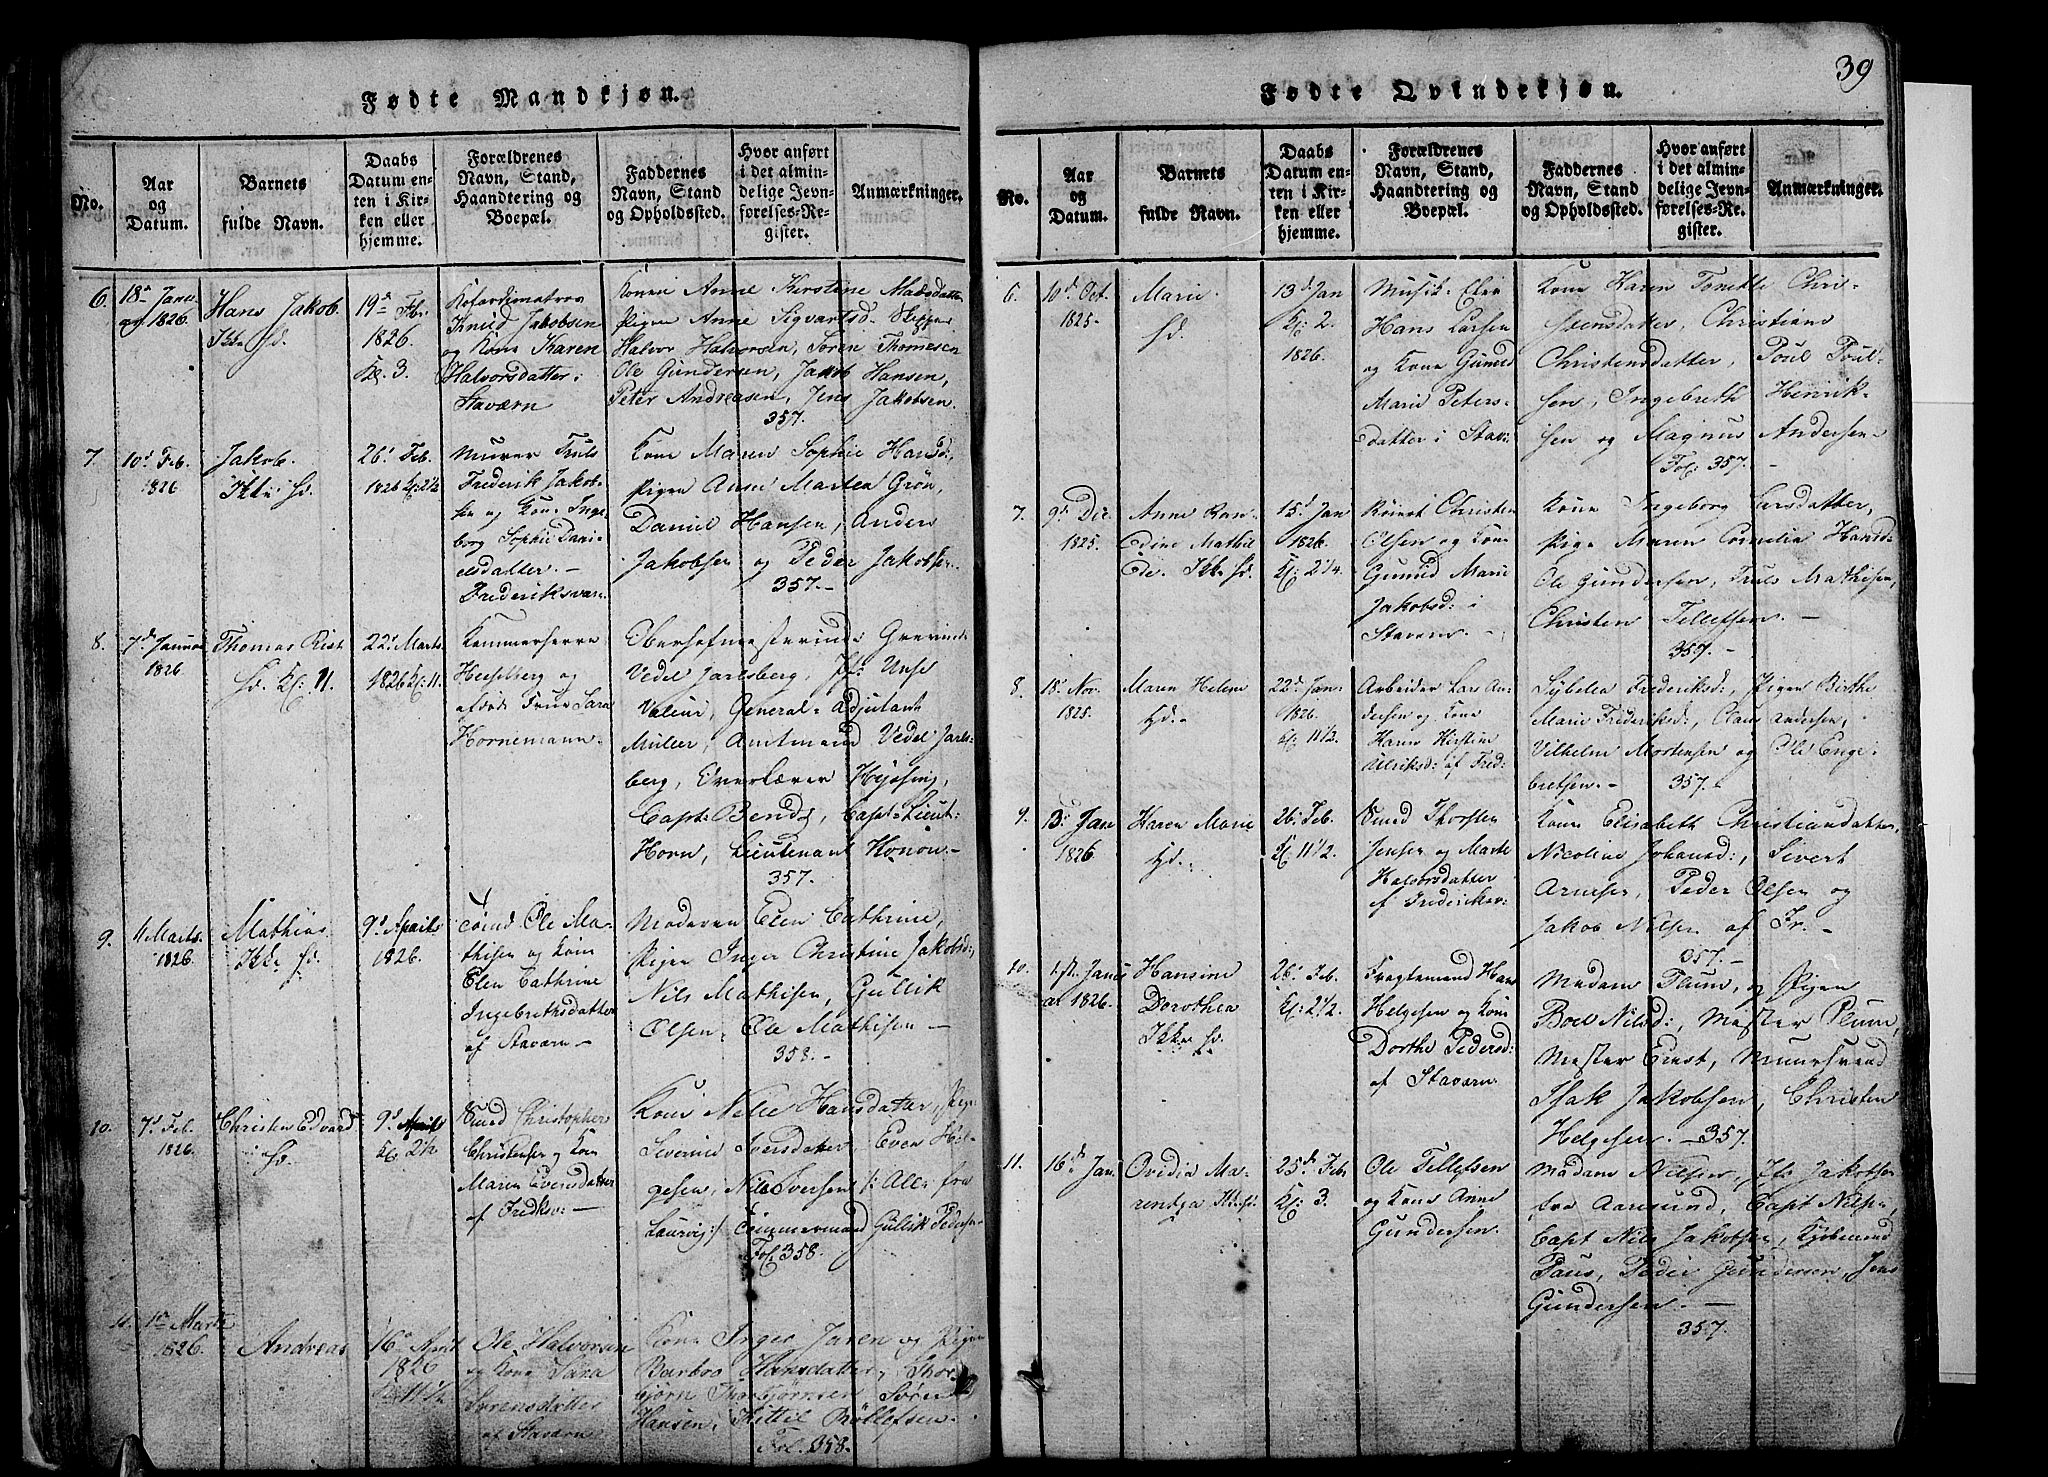 Fødte Mandkjøn.
No.
Aar
og
Datum.
Barnets
fulde Navn.
Daabs
Datum en-
ten i Kir-
ken eller
hjemme.
Forældrenes
Navn, Stand,
Haandtering og
Boepæl.
Faddernes
Navn, Stand
og Opholdssted.
Hvor anført
i det almin-
delige Jevn-
førelses-Re-
gister.
Anmærkninger.
6.
18de Janu-
ar 1826.
Hans Jakob.
Ikke hd.
19de Febr.
1826.
Kl. 3.
Kofardimatros
Knud Jakobsen
og Kone Karen
Halvorsdatter i
Staværn
Konen Anne Kirstine Madsdatter
Pigen Anne Sigvartsd. Skipper
Halvor Halvorsen, Søren Thomesen
Ole Gundersen, Jakob Hansen,
Peter Andreasen, Jens Jakobsen.
357.
7.
10d Feb.
1826
Jakob.
Ikke hd.
26d Feb.
1826 Kl: 2½
Murer Truls
Frederik Jakob-
sen og Kone Inge-
borg Sophie Dani-
elsdatter. –
Frederiksværn
Kone Maren Sophie Hansd:,
Pigen Anne Marten Grøn,
Daniel Hansen, Anders
Jakobsen og Peder Jakobsen.
357. –
8.
7de Januar
1826
Thomas Rist
hd. Kl: 11.
22d Marts
1826 Kl: 11.
Kammerherre
Hesselberg og
afdøde Frue Sara
Hornemann.
Oberhofmesterinde Grevinde
Vedel Jarlsberg, Jfr Unse
Valeur, General-Adjutant
Müller, Amtmand Vedel Jarls-
berg, Overlærer
Capt: Bendz, Capt-Lieut:
Horn, Lieutenant Honon. –
357.
9.
4 Marts.
1826.
Mathias
Ikke hd.
9d April
1826.
Tømd. Ole Ma-
thisen og Kone
Elen Cathrine
Ingebrethsdatter
af Staværn –
Moderen Elen Cathrine,
Pigen Inger Christine Jakobsd:,
Nils Mathisen, Gullik
Olsen, Ole Mathisen –
358. –
10.
7d Feb.
1826.
Christen Edvard
hd.
9d April
Kl. 2½
Smed Christopher
Christenser og Kone
Maren Evensdatter
af Fredksv: –
Kone Nelle Hansdatter, Pige
Severine Iversdatter, Even Hel-
gesen, Nils Iversen /: Alle fra
Laurvig :/ Tømmermand Gullik Pedersen
Fol. 358.
11.
1ste Marts
1826.
Andreas
16d April
1826
Kl 11½
Ole Halvorsen
og Kone Sara
Sørensdatter
af Staværn
Kone Inger Jaren og Pigen
Barbro Hansdatter, Thor-
bjørn Thorbjørnsen Søren
Hansen, Kittil Rollefsen.
Fol. 358.
39
Fødte Qvindekjøn.
No.
Aar
og
Datum.
Barnets
fulde Navn.
Daabs
Datum en-
ten i Kir-
ken eller
hjemme.
Forældrenes
Navn, Stand,
Haandtering og
Boepæl.
Faddernes
Navn, Stand
og Opholdssted.
Hvor anført
i det almin-
delige Jevn-
førelses-Re-
gister.
Anmærkninger.
6.
10d Oct.
1825.
Marie
hd.
13d Jan
Kl: 2.
1826.
Musik-Elev
Hans Larsen
og Kone Gunild
Marie Peters-
datter i Stav:
Kone Karen Tonette Chri-
stensdatter, Christiane
Christensdatter, Poul Poul-
sen, Ingebreth Henrik-
sen og Magnus Andersen –
Fol: 357. –
7.
9d Dec
1825.
Anne Ran-
dine Mathil-
de. Ikke hd.
15d Jan
1826.
Kl: 2¼.
Christen
Olsen og Kone
Gunild Marie
Jakobsd: i
Stavern. –
Kone Ingeborg Larsdatter,
Pige Maren Cornelia Hansd:
Ole Gundersen, Truls Mathisen,
Christen Tellefsen. –
357. –
8.
15d Nov.
1825.
Maren Helene
hd. –
22d Jan.
1826.
Kl 11½.
Arbeider Lars An-
dersen og Kone
Karen Kirstine
Ulriksd: af Fred:
Sybelea Frederiksd:, Pigen Birthe
Marie Frederiksd:, Claus Andersen,
Vilhelm Mortensen og Ole Enge-
bretsen. –
357. –
9.
13d Jan
1826.
Karen Marie
hd. –
26d Feb.
Kl 11½.
Smed Thorsten
Jenser og Marte
Halvorsdatter
af Frederiksv:
Kone Elisabeth Christiansdatter,
Nicoline Johansd:, Sivert
Arnesen, Peder Olsen og
Jakob Nilsen af Fr. –
357. –
10.
1ste Janu-
ar 1826.
Hansine
Dorothea
Ikke hd.
26d Feb.
Kl: 2½.
Fragtemand Hans
Helgesen og Kone
Dorthe Pedersd:
af Staværn.
Madam Plum, og Pigen
Boel Nilsd:, Mester Plum,
Mester Ernst, Muursvend
Isak Jakobsen, Christen
Helgesen. – 357.
11.
16de Jan.
Ovidia Ma-
rentza Ikke hd.
25de Feb
Kl: 3.
Ole Tellefsen
og Kone Anne
Gundersen.
Madam Nilsen, Jfr Jakobsen
fra Aaresund, Capt Nilsen,
Capt Nils Jakobsen, Kjøbmand
Paus, Peder Gundersen, Jens
Gundersen. –
357.